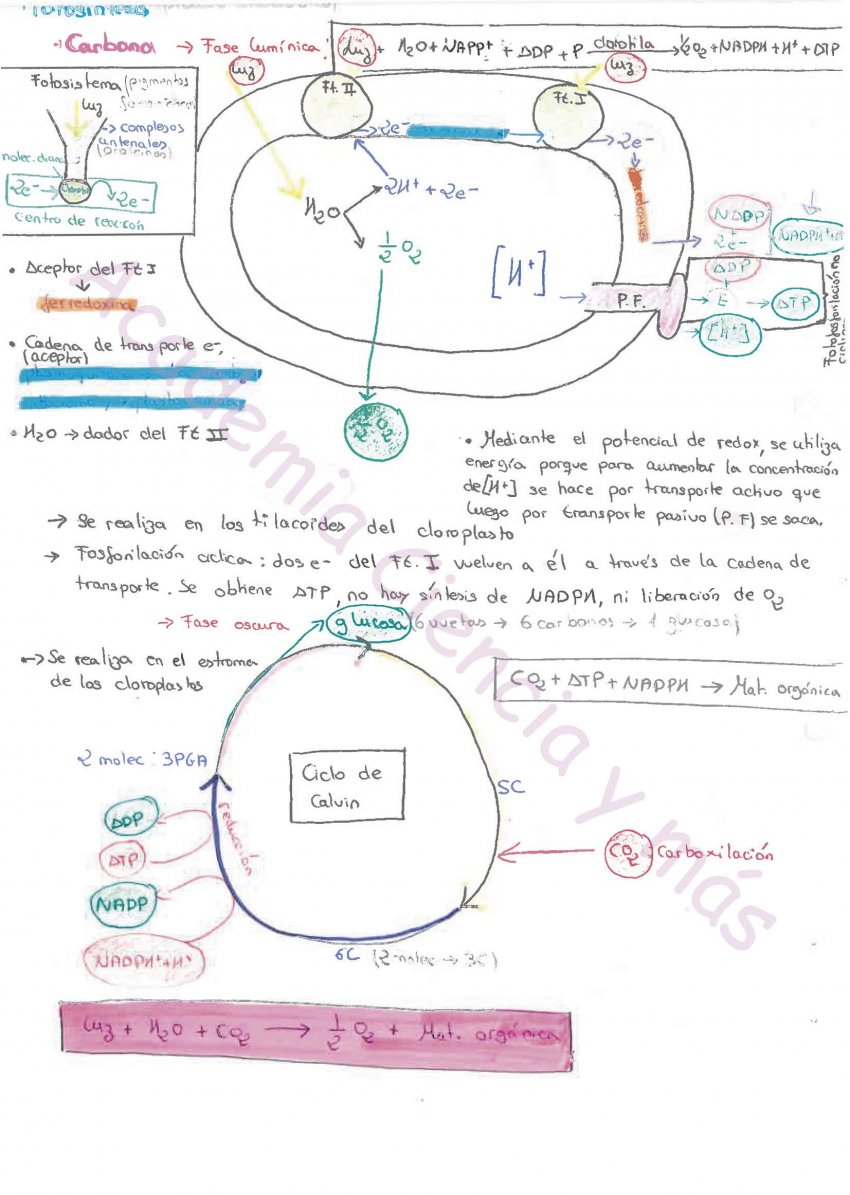 Fotosíntesis
·) Carbono → Fase Lumínica: Luz + H2O + NADP+ + ADP + P clorofila → ½O2 + NADPH + H+ + ATP
Luz
Luz
Ft. II
Ft. I
Fotosistema (pigmentos
Luz
→ complejos
antenales
(proteínas)
2e- →
Clorofila
2e-
centro de reacción
→ 2e-
→ 2e-
H2O
2H+ + 2e-
½ O2
[H+]
P.F.
NADP
+
2e-
NADPH+H+
ADP
+
E → ATP
[H+]
Fotofosforilación no
cíclica
½O2
• Aceptor del Ft I
ferredoxina
• Cadena de transporte e-,
(aceptor)
• H2O → dador del Ft II
• Mediante el potencial de redox, se utiliza
energía porque para aumentar la concentración
de [H+] se hace por transporte activo que
luego por transporte pasivo (P.F) se saca.
→ Se realiza en los tilacoides del cloroplasto
→ Fosforilación cíclica: dos e- del Ft. I vuelven a él a través de la cadena de
transporte. Se obtiene ATP, no hay síntesis de NADPH, ni liberación de O2
→ Fase oscura
glucosa (6 vueltas → 6 carbonos → 1 glucosa)
→ Se realiza en el estroma
de los cloroplastos
CO2 + ATP + NADPH → Mat. orgánica
2 molec: 3PGA
Ciclo de
Calvin
5C
reducción
ADP
ATP
NADP
NADPH+H+
CO2 Carboxilación
6C (2 molec → 3C)
Luz + H2O + CO2 → ½ O2 + Mat. orgánica
Academia Ciencia y más